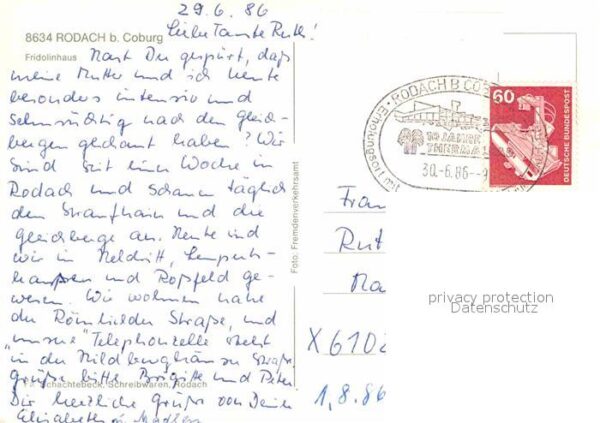 29.6.86
Liebe Tante Ruth!
8634 RODACH b. Coburg
Fridolinhaus
Hast Du gespürt, daß
meine Mutter und ich heute
besonders intensiv und
sehnsüchtig nach den Gleich-
bergen geschaut haben? Wir
sind seit einer Woche in
Rodach und schauen täglich
den Straufhain und die
Gleichberge an. Heute sind
wir in Heldritt, Lempertz-
hausen und Roßfeld ge-
wesen. Wir wohnen nahe
der Römhilder Straße, und
"unsere" Telephonzelle steht
in der Hildburghäuser Straße.
Grüße bitte Brigitte und Peter
Schachtebeck, Schreibwaren, Rodach
Dir herzliche Grüße von Deiner
Elisabeth u.
Foto: Fremdenverkehrsamt
RODACH B COB
Erholungsort mit
10 JAHRE
THERMAL
30.-6.86--9
60
DEUTSCHE BUNDESPOST
Frau
Rut
privacy protection
Datenschutz
X 6102
1.8.86